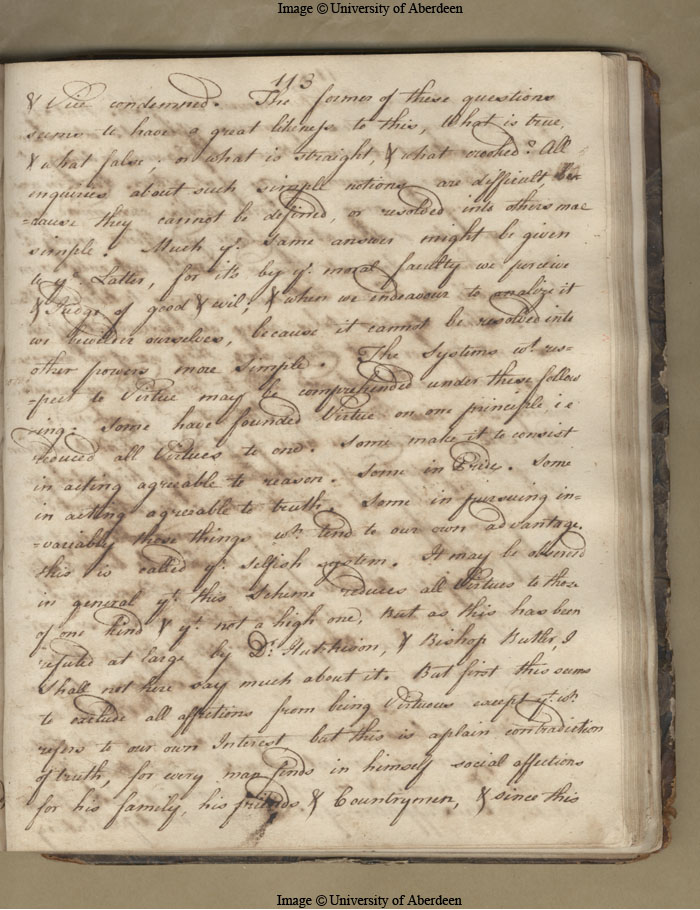 Image © University of Aberdeen
113
& Vice condemned. The former of these questions
seems to have a great likeness to this, What is true,
& what false, or what is straight, & what crooked? All
inquiries about such simple notions are difficult, be=
=cause they cannot be defined, or resolved into others more
simple. Much yͤ same answer might be given
to yͤ Latter, for it's by yͤ moral faculty we perceive
& Judge of good & evil, & when we endeavour to analize it
we bewilder ourselves, because it cannot be resolved into
other powers more simple. The Systems wͭ res=
=pect to Virtue may be comprehended under these follow
=ing. Some have founded Virtue on one principle i e
reduced all Virtues to one. Some make it to consist
in acting agreable to reason. Some in Pride. Some
in acting agreable to truth. Some in pursuing in=
=variably these things wͨͪ tend to our own advantage,
this is called yͤ selfish system. It may be observed
in general yͭ this Scheme reduces all Virtues to those
of one kind & yͭ not a high one, But as this has been
refuted at large by Dͬ Hutchison, & Bishop Butler, I
Shall not here say much about it. But first this seems
to exclude all affections from being Virtuous except yͭ wͨͪ
refers to our own Interest, but this is a plain contradiction
of truth, for every man finds in himself social affections
for his family, his friends & Countrymen, & since this
Image © University of Aberdeen